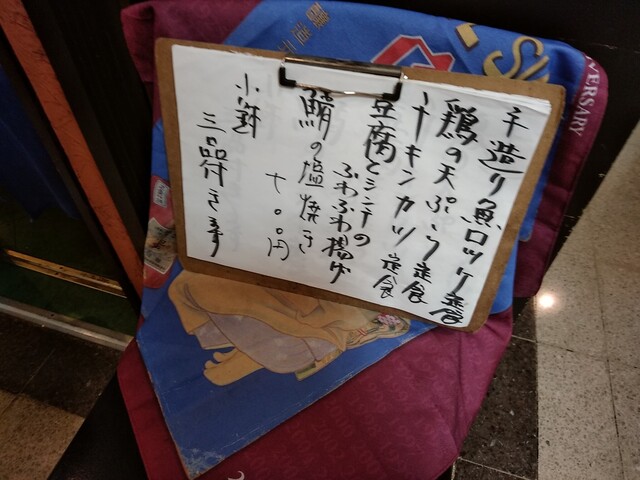 手造り魚ロッケ定食
鶏の天ぷら定食
チキンカツ定食
豆腐とシラチの
ふわふわ揚げ
鯖の塩焼き
七〇〇円
小鉢
三品付きます
VERSARY